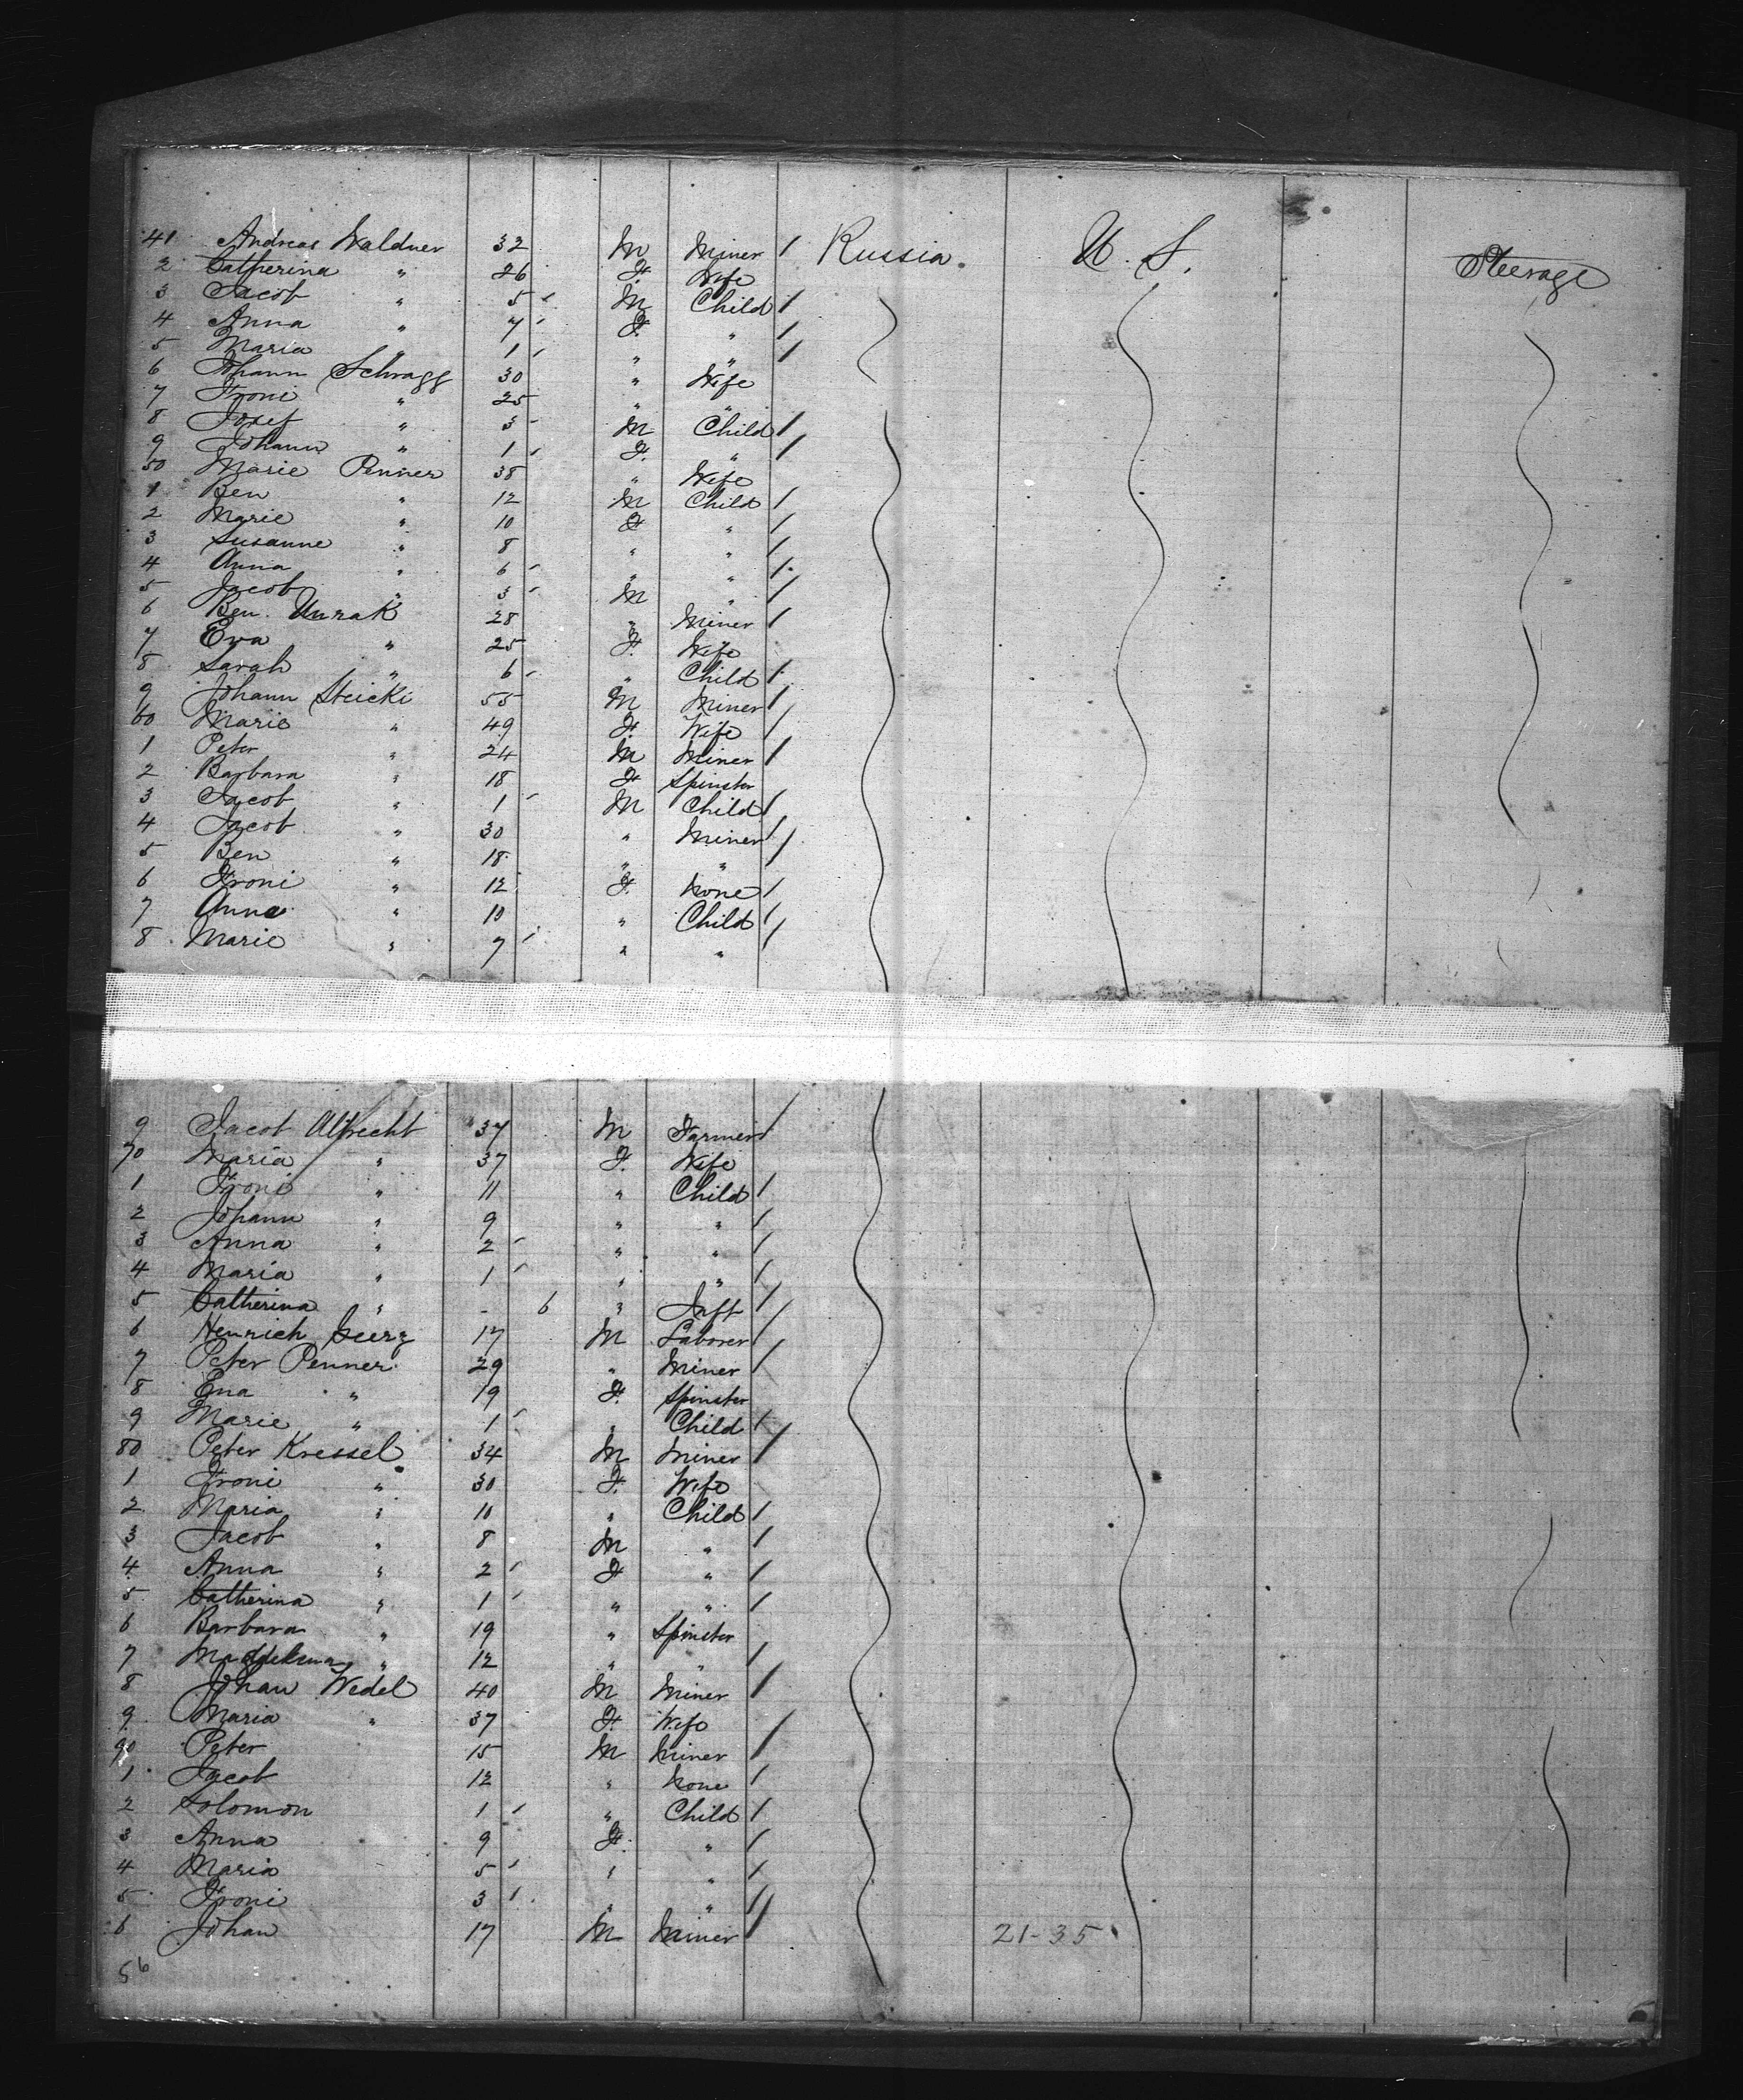 41 Andreas Waldner 32 M Miner / Russia. U. S. Steerage
2 Catherina " 26 F. Wife
3 Jacob " 5 M Child /
4 Anna " 7 F. " /
5 Maria " 1 " " /
6 Johann Schragg 30 " Wife
7 Froni " 25 " "
8 Josef " 3 M Child /
9 Johann " 1 F. " /
50 Marie Penner 38 " Wife
1 Ben " 12 M Child /
2 Marie " 10 F " /
3 Susanne " 8 " " /
4 Anna " 6 " " /
5 Jacob " 3 M " /
6 Ben. Unrak 28 " Miner /
7 Eva " 25 F. Wife
8 Sarah " 6 " Child /
9 Johann Steicki 55 M Miner /
60 Marie " 49 F. Wife /
1 Peter " 24 M Miner /
2 Barbara " 18 F Spinster
3 Jacob " 1 M Child /
4 Jacob " 30 " Miner /
5 Ben " 18 " " /
6 Froni " 12 F. None /
7 Anna " 10 " Child /
8 Marie " 7 " " /
9 Jacob Albrecht 37 M Farmer /
70 Maria " 37 F. Wife
1 Froni " 11 " Child /
2 Johann " 9 " " /
3 Anna " 2 " " /
4 Maria " 1 " " /
5 Catherina " - 6 " Inft /
6 Henrich 17 M Laborer /
7 Peter Penner 29 " Miner /
8 Ena " 19 F. Spinster
9 Marie " 1 " Child /
80 Peter Kressel 34 M Miner /
1 Froni " 30 F. Wife
2 Maria " 10 " Child /
3 Jacob " 8 M " /
4 Anna " 2 F " /
5 Catherina " 1 " " /
6 Barbara " 19 " Spinster
7 " 12 " " /
8 Johan Wedel 40 M Miner /
9 Maria " 37 F. Wife
90 Peter 15 M Miner /
1 Jacob 12 " None /
2 Solomon 1 " Child /
3 Anna 9 F. " /
4 Maria 5 " " /
5 Froni 3 " " /
6 Johan 17 M Miner / 21-35
56